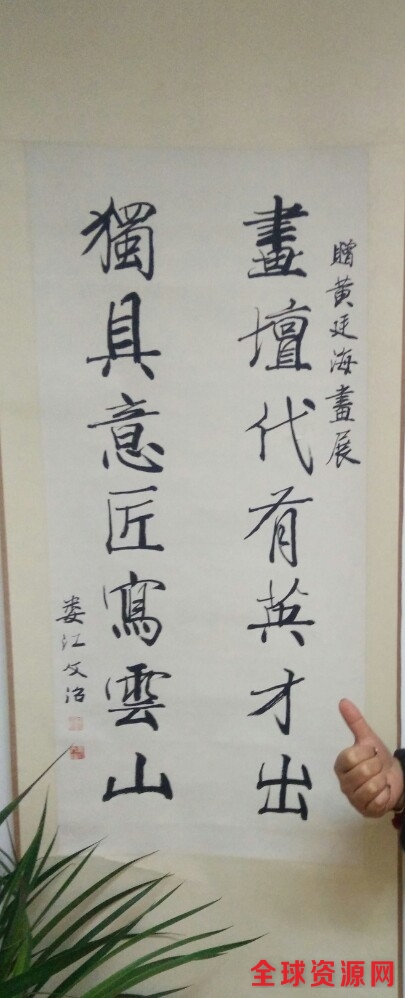 贈黃廷海畫展
畫壇代有英才出
獨具意匠寫雲山
娄江文治
全球资源网